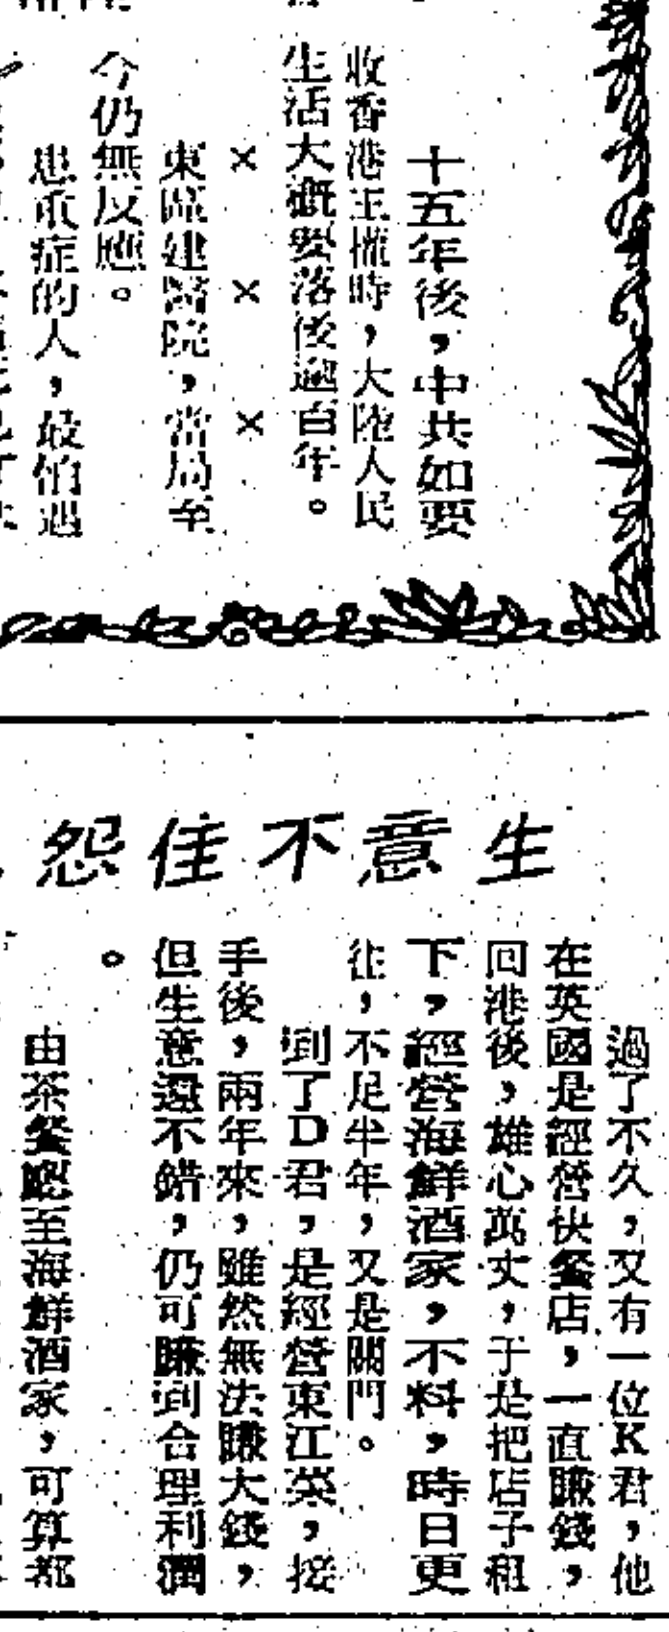 十五年後，中共如要
收香港主權時，大陸人民
生活大概要落後逾百年。
× × ×
東區建醫院，當局至
今仍無反應。
患重症的人，最怕遇
生意不佳怨
過了不久，又有一位K君，他
在英國是經營快餐店，一直賺錢，
回港後，雄心萬丈，于是把店子租
下，經營海鮮酒家，不料，時日更
往，不足半年，又是關門。
到了D君，是經營東江菜，接
手後，兩年來，雖然無法賺大錢，
但生意還不錯，仍可賺到合理利潤
。
由茶餐廳至海鮮酒家，可算都